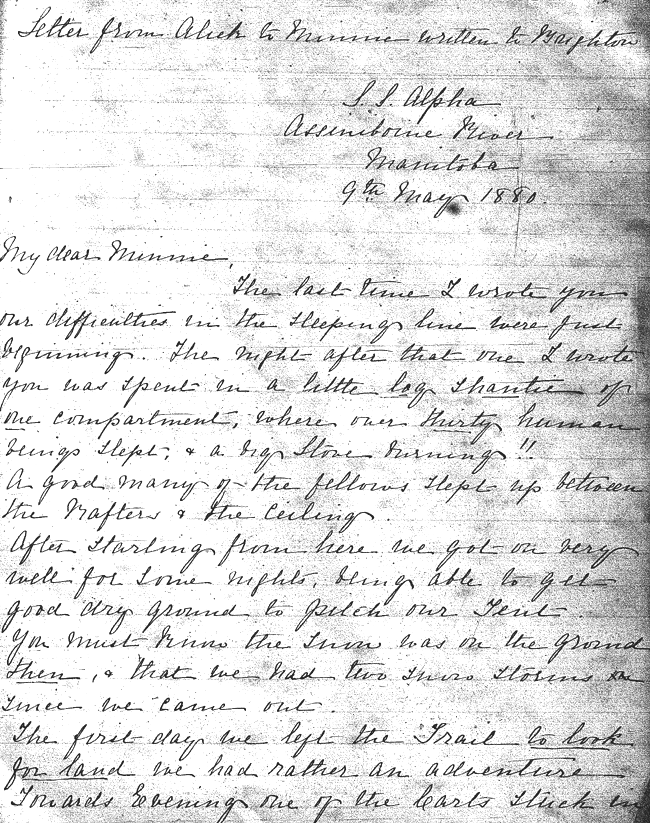 Letter from Alick to Minnie written to Brighton
S. S. Alpha
Assiniboine River
Manitoba
9th May 1880.
My dear Minnie,
The last time I wrote you
our difficulties in the sleeping line were just
beginning. The night after that one I wrote
you was spent in a little log shantie of
one compartment, where over thirty human
beings slept, & a big stove burning!!
A good many of the fellows slept up between
the Rafters & the ceiling.
After starting from here we got on very
well for some nights, being able to get
good dry ground to pitch our Tent.
You must know the snow was on the ground
then, & that we had two snow storms
since we came out.
The first day we left the Trail to look
for land we had rather an adventure
Towards Evening one of the Carts stuck in